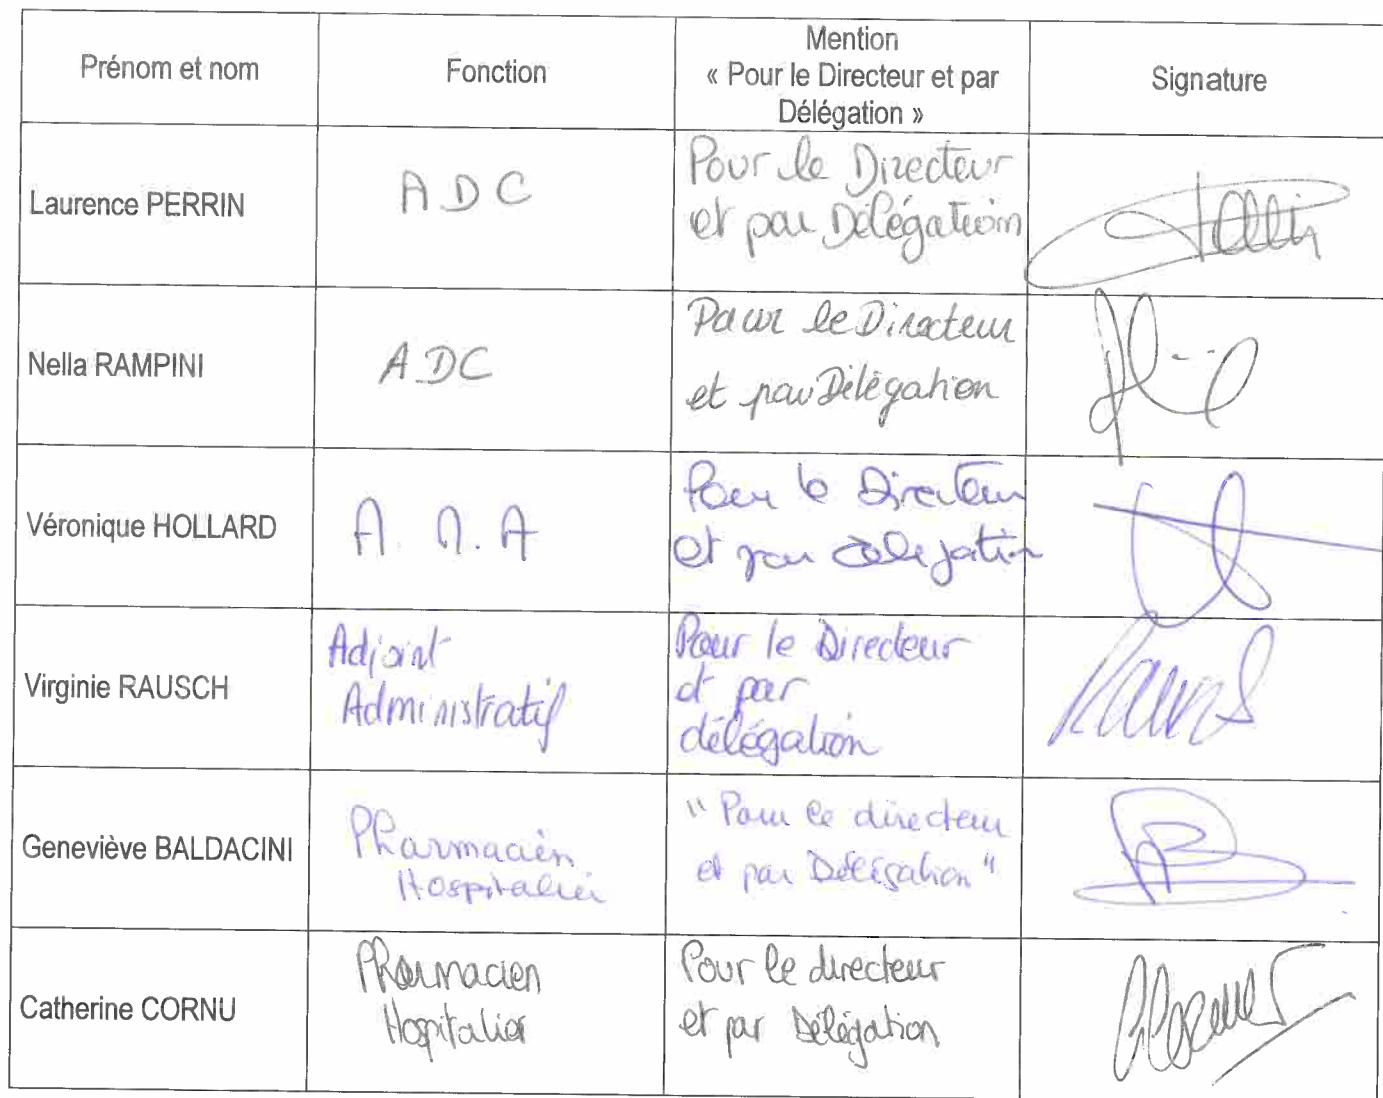 Prénom et nom
Fonction
Mention
« Pour le Directeur et par
Délégation »
Signature
Laurence PERRIN
ADC
Pour le Directeur
et par Délégation
Nella RAMPINI
ADC
Pour le Directeur
et par Délégation
Véronique HOLLARD
Pour le Directeur
et par délégation
Virginie RAUSCH
Adjoint
Administratif
Pour le Directeur
et par
délégation
Geneviève BALDACINI
Pharmacien
Hospitalier
" Pour le directeur
et par Délégation "
Catherine CORNU
Pharmacien
Hospitalier
Pour le directeur
et par Délégation